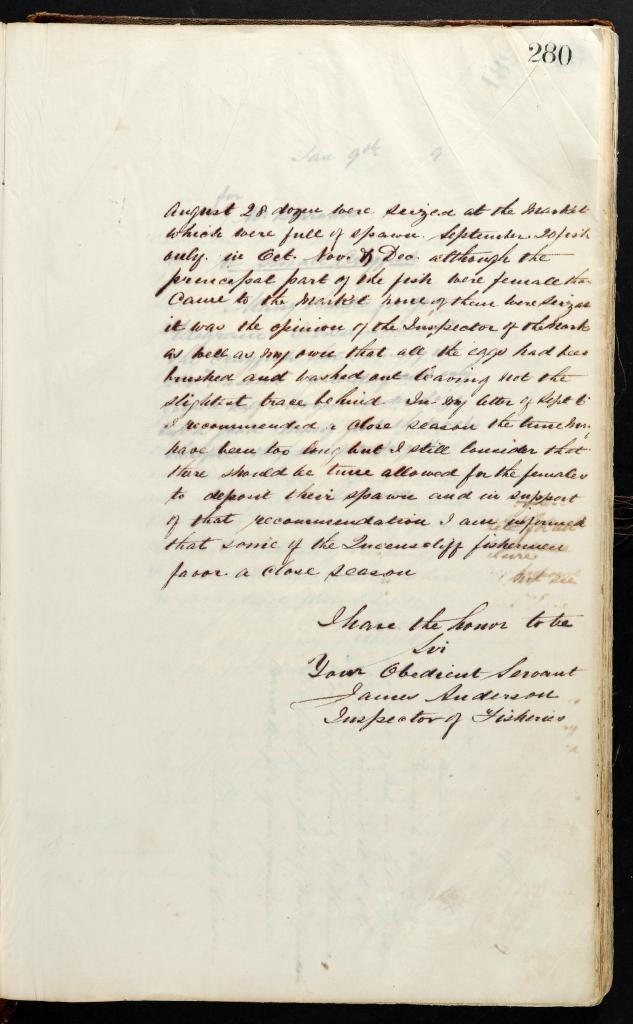 280
Jan 9th 9
August 28 dozen were seized at the Market
which were full of spawn. September 20 fish
only. in Oct. Nov. & Dec. although the
principal part of the fish were female that
Came to the Market none of them were seized
it was the opinion of the Inspector of the Mark
as well as my own that all the eggs had been
brushed and washed out leaving not the
slightest trace behind. In my letter of Sept
I recommended a Close season the time may
have been too long but I still consider that
there should be time allowed for the females
to deposit their spawn and in support
of that recommendation I am informed
that some of the Queenscliff fishermen
favor a Close season
I have the honor to be
Sir
Your Obedient Servant
James Anderson
Inspector of Fisheries